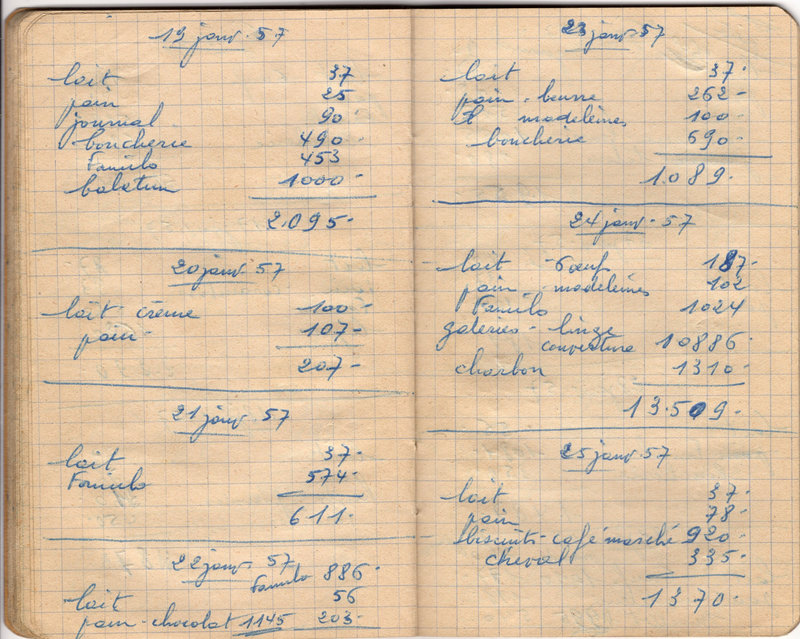 19 janv. 57
lait 37
pain 25
journal 90
boucherie 490
Familo 453
balatum 1000
2.095
20 janv 57
lait crème 100
pain 107
207
21 janv 57
lait 37
Familo 574
611
22 janv 57
Familo 886
lait 56
pain-chocolat 1145 203
23 janv 57
lait 37
pain - beurre 262
madeleines 100
boucherie 690
1.089
24 janv. 57
lait - 6 œufs 187
pain - madeleines 102
Familo 1024
galeries - linge
couverture 10886
charbon 1310
13.509
25 janv 57
lait 37
pain 78
biscuits-café marché 920
cheval 335
1370